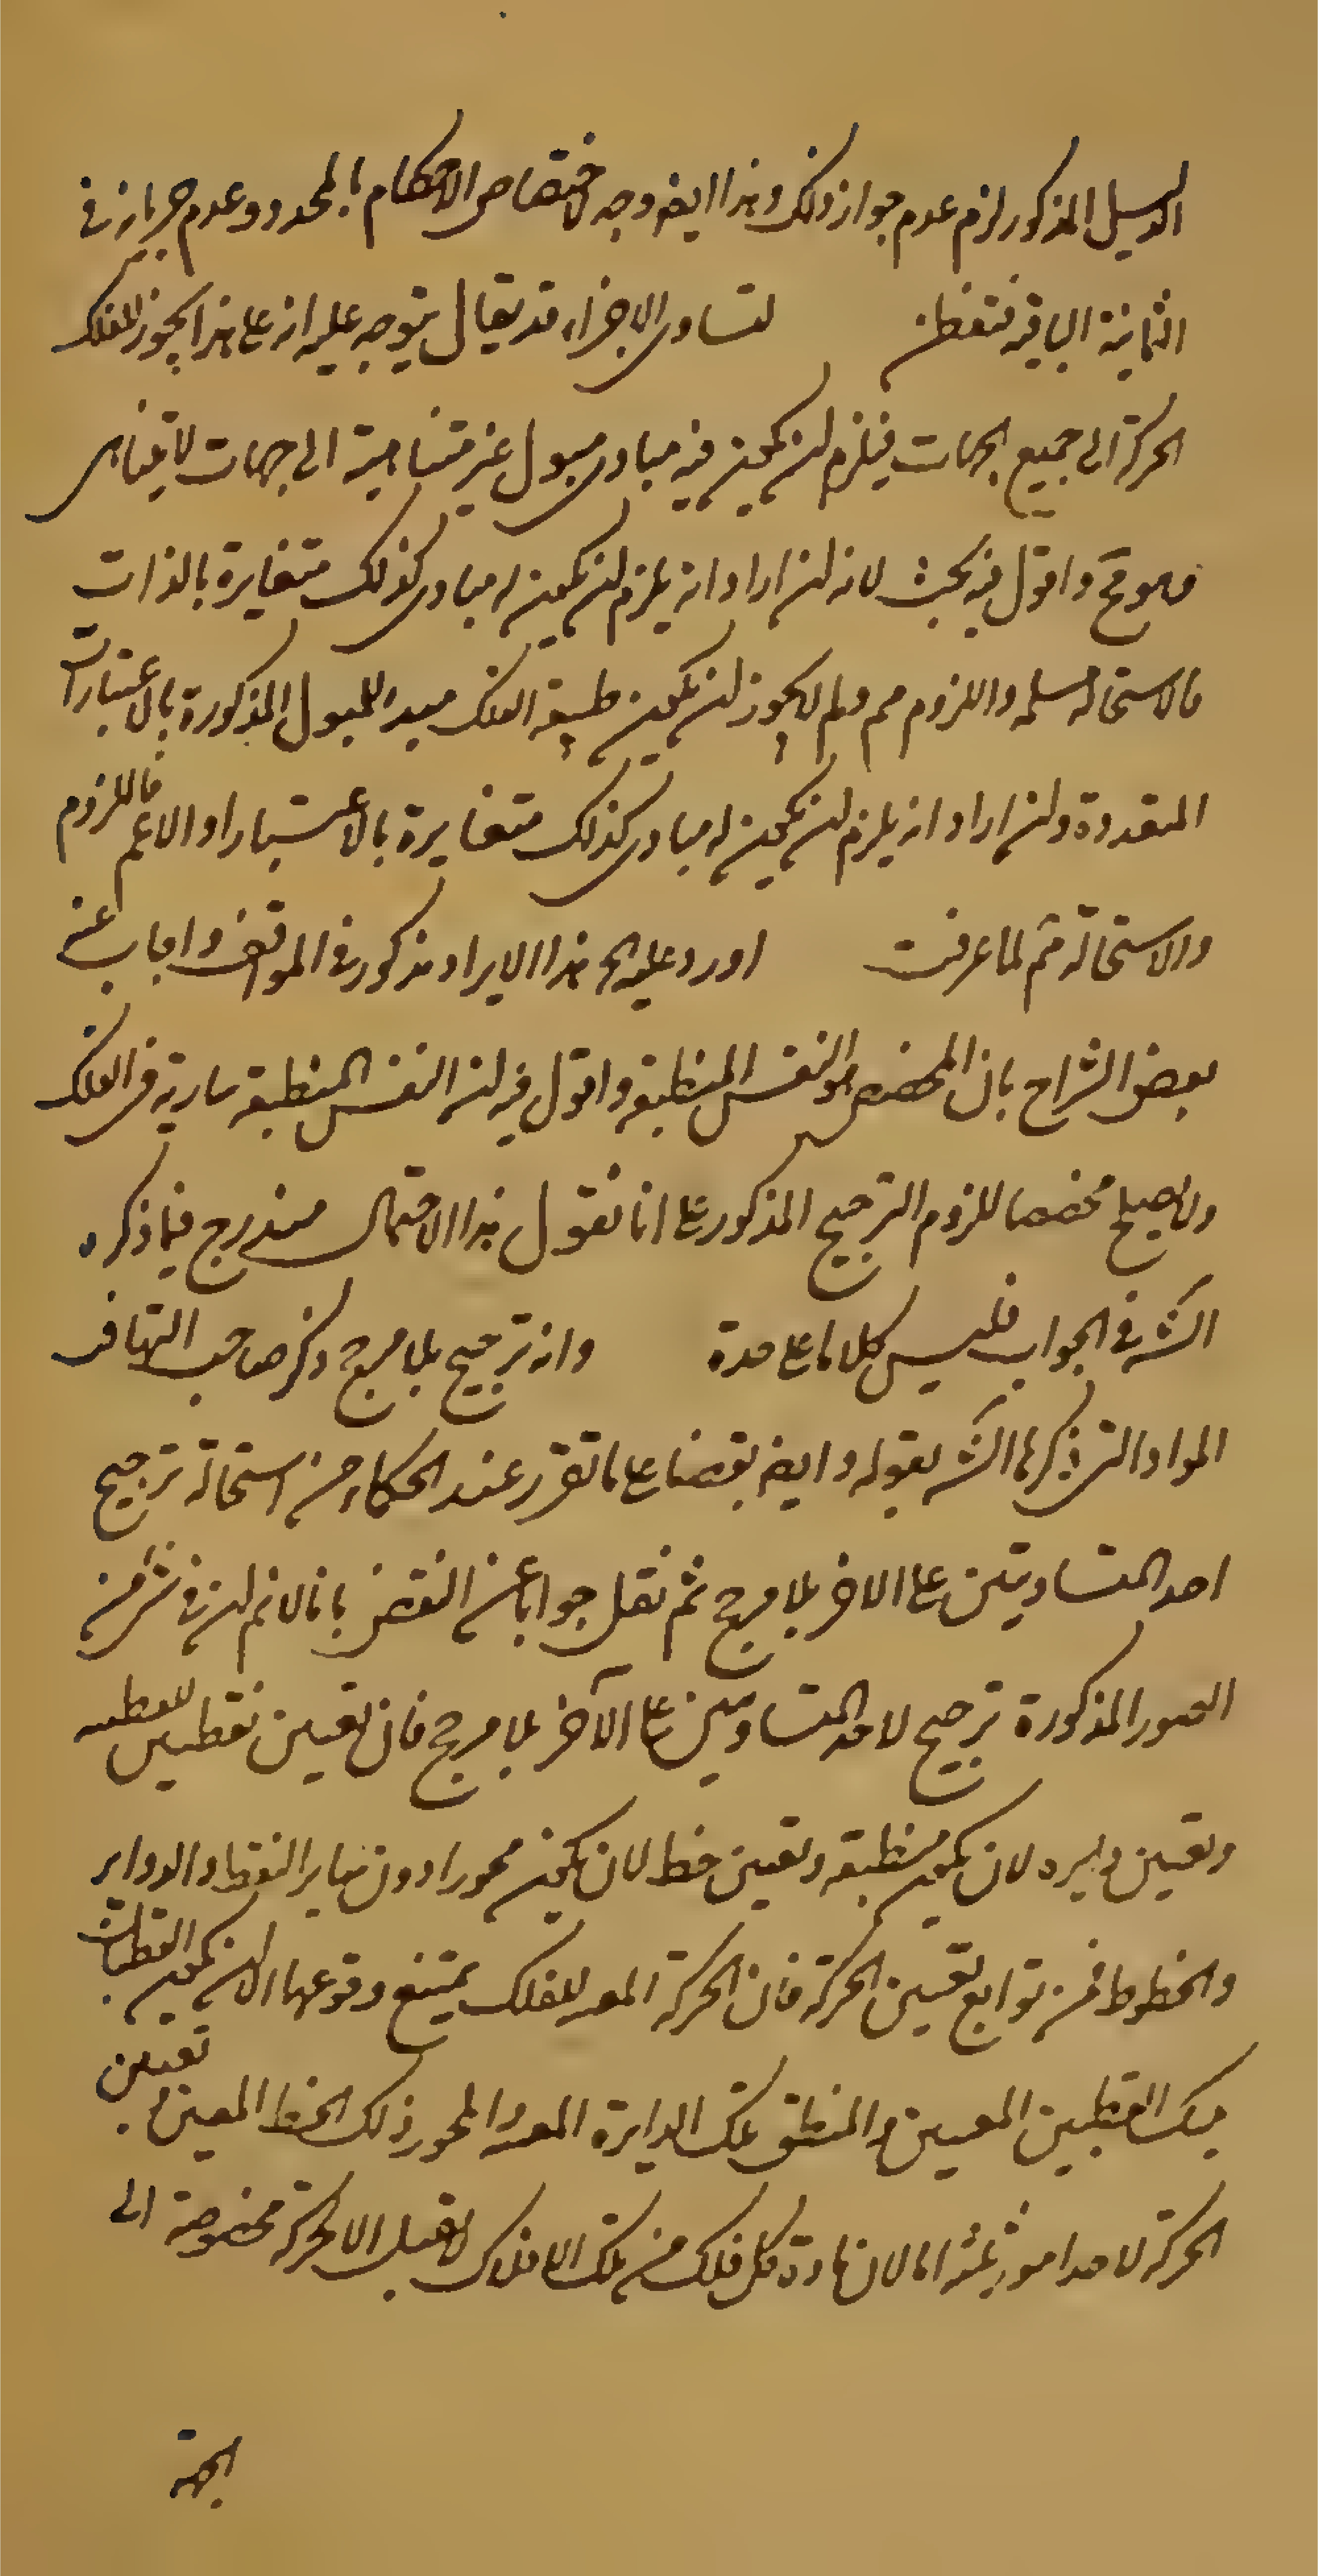 الدليل المذكور لزم عدم جواز ذلك وهذا ايضا وجه لاختصاص الاحكام بالمحدد وعدم جريانه في
الثمانية الباقية فتفطن لتساوى الاجزاء قد يقال يتوجه عليه انه على هذا يجوز للفلك
الحركة الى جميع الجهات فيلزم ان يكون فيه مبادى ميول غير متناهية الى جهات لا تتناهى
وهو مح واقول فيه بحث لانه ان اراد انه يلزم ان يكون له مبادى كذلك متغايرة بالذات
فالاستحالة مسلمة واللزوم مم ولم لا يجوز ان يكون طبيعة الفلك مبدء للميول المذكورة بالاعتبارات
المتعددة وان اراد انه يلزم ان يكون له مبادى كذلك متغايرة بالاعتبار او الاعم فاللزوم
والاستحالة مم لما عرفت اورد عليه الخ هذا الايراد مذكور في المواقف واجاب عنه
بعض الشراح بان المخصص هو النفس المنطبعة واقول فيه ان النفس المنطبعة سارية في الفلك
ولا يصلح مخصصا للزوم الترجيح المذكور على انا نقول هذا الاحتمال مندرج فيما ذكره
الش في الجواب فليس كلاما على حدة وانه ترجيح بلا مرجح ذكر صاحب التهافت
المواد التى ذكرها الش بقوله وايضا نقضا على ما تقرر عند الحكماء من استحالة ترجيح
احد المتساويين على الاخر بلا مرجح ثم نقل جوابا عن النقض بانا لا نم ان في شئ من
الصور المذكورة ترجيح لاحد المتساويين على الآخر بلا مرجح فان تعيين نقطتين للقطبية
وتعيين دايرة لان يكون منطقة وتعيين خط لان يكون محورا دون ساير النقط والدواير
والخطوط فمن توابع تعيين الحركة فان الحركة المعينة للفلك يمتنع وقوعها الا ان يكون القطبان
ذينك القطبين المعينين والمنطقة تلك الدايرة المعينة والمحور ذلك الخط المعين وتعيين
الحركة لاحد امور ثلثة اما لان مادة كل فلك من تلك الافلاك لا تقبل الا حركة مخصوصة الى
الجهة